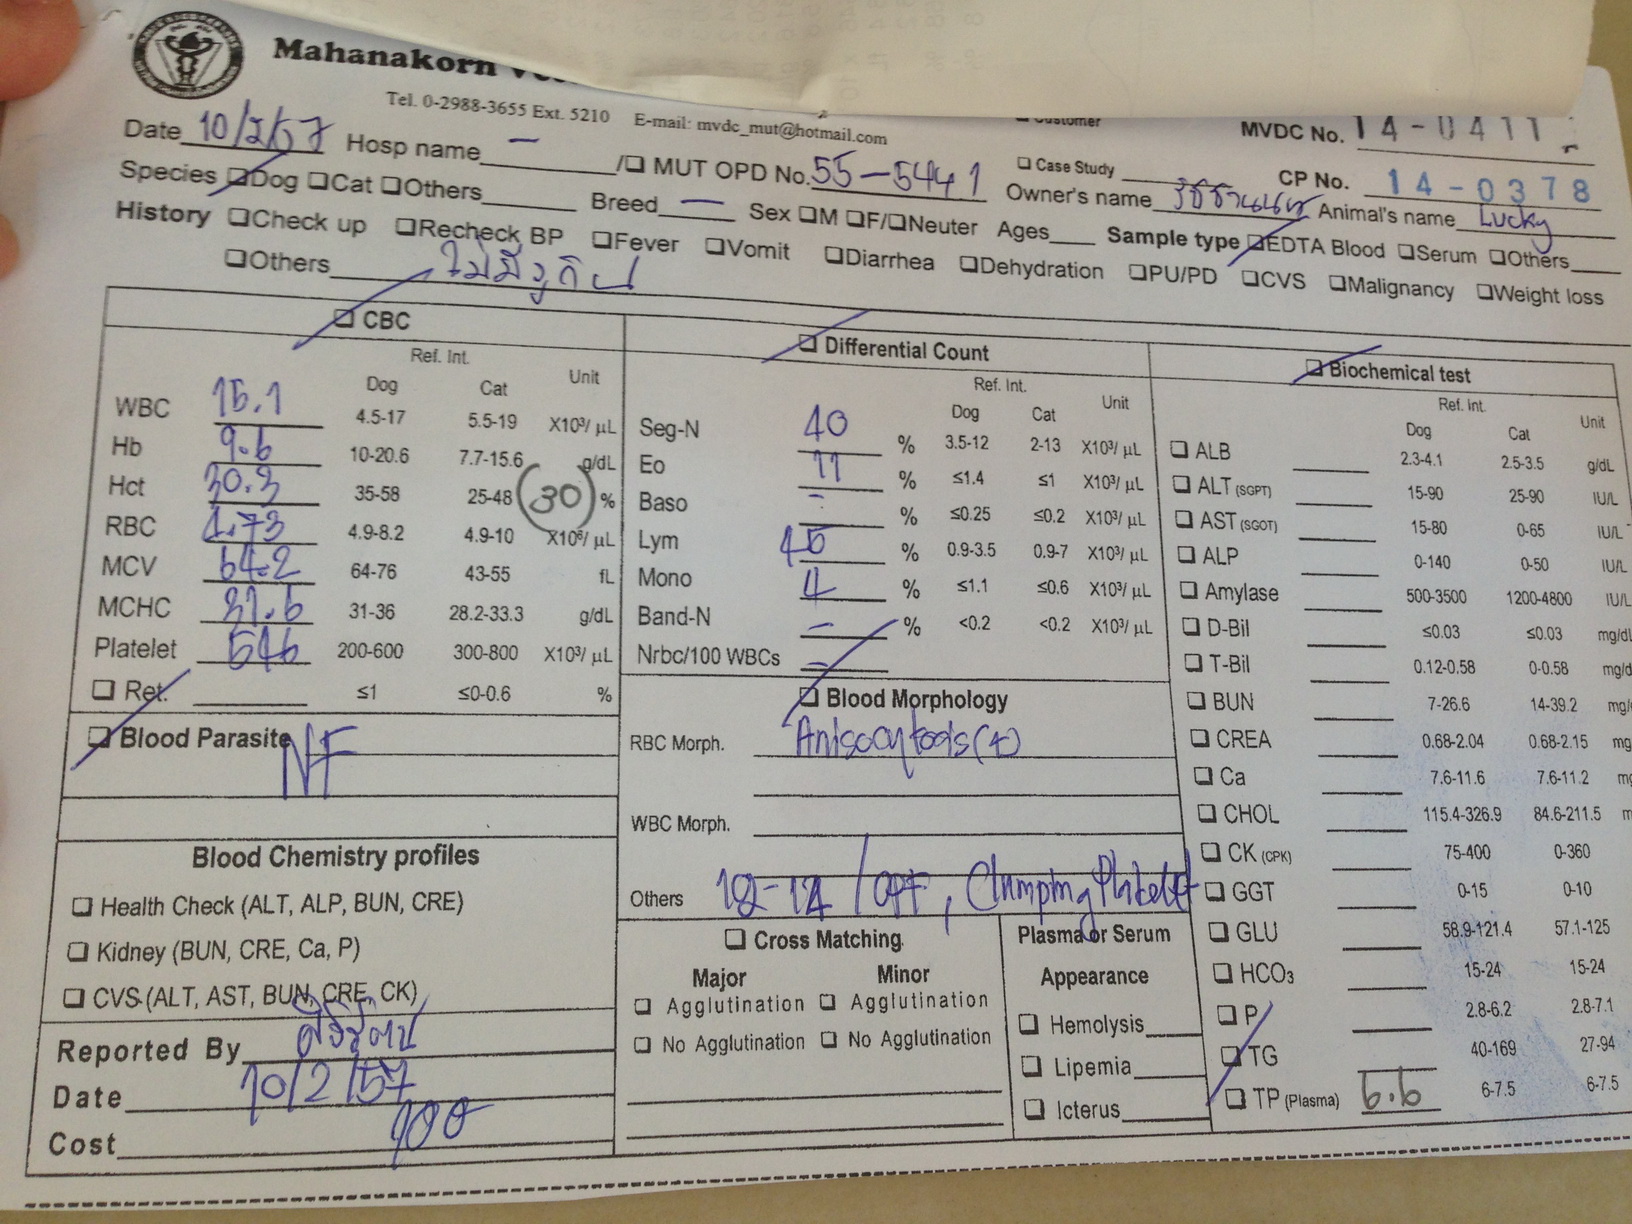 Mahanakorn
Tel. 0-2988-3655 Ext. 5210 E-mail: mvdc_mut@hotmail.com
Customer MVDC No. 14-0411
Date 10/2/57 Hosp name – /❑ MUT OPD No. 55-5441 ❑ Case Study CP No. 14-0378
Species ❑Dog ❑Cat ❑Others Breed — Sex ❑M ❑F/❑Neuter Ages Owner's name Animal's name Lucky
Sample type ❑EDTA Blood ❑Serum ❑Others
History ❑Check up ❑Recheck BP ❑Fever ❑Vomit ❑Diarrhea ❑Dehydration ❑PU/PD ❑CVS ❑Malignancy ❑Weight loss
❑Others
❑ CBC
Ref. Int.
Dog Cat Unit
WBC 15.1 4.5-17 5.5-19 X10³/ µL
Hb 9.6 10-20.6 7.7-15.6 g/dL
Hct 30.3 35-58 25-48 (30) %
RBC 4.73 4.9-8.2 4.9-10 X10⁶/ µL
MCV 64.2 64-76 43-55 fL
MCHC 31.6 31-36 28.2-33.3 g/dL
Platelet 546 200-600 300-800 X10³/ µL
❑ Ret. ≤1 ≤0-0.6 %
❑ Blood Parasite NF
Blood Chemistry profiles
❑ Health Check (ALT, ALP, BUN, CRE)
❑ Kidney (BUN, CRE, Ca, P)
❑ CVS (ALT, AST, BUN, CRE, CK)
Reported By
Date 10/2/57
Cost 100
❑ Differential Count
Ref. Int.
Dog Cat Unit
Seg-N 40 % 3.5-12 2-13 X10³/ µL
Eo 11 % ≤1.4 ≤1 X10³/ µL
Baso - % ≤0.25 ≤0.2 X10³/ µL
Lym 45 % 0.9-3.5 0.9-7 X10³/ µL
Mono 4 % ≤1.1 ≤0.6 X10³/ µL
Band-N – % <0.2 <0.2 X10³/ µL
Nrbc/100 WBCs –
❑ Blood Morphology
RBC Morph. Anisocytosis(+)
WBC Morph.
Others 12-14 /OPF, Clumping Platelet
❑ Cross Matching
Major Minor
❑ Agglutination ❑ Agglutination
❑ No Agglutination ❑ No Agglutination
Plasma or Serum
Appearance
❑ Hemolysis
❑ Lipemia
❑ Icterus
❑ Biochemical test
Ref. Int.
Dog Cat Unit
❑ ALB 2.3-4.1 2.5-3.5 g/dL
❑ ALT (SGPT) 15-90 25-90 IU/L
❑ AST (SGOT) 15-80 0-65 IU/L
❑ ALP 0-140 0-50 IU/L
❑ Amylase 500-3500 1200-4800 IU/L
❑ D-Bil ≤0.03 ≤0.03 mg/dL
❑ T-Bil 0.12-0.58 0-0.58 mg/d
❑ BUN 7-26.6 14-39.2 mg/
❑ CREA 0.68-2.04 0.68-2.15 mg
❑ Ca 7.6-11.6 7.6-11.2 mg
❑ CHOL 115.4-326.9 84.6-211.5 m
❑ CK (CPK) 75-400 0-360
❑ GGT 0-15 0-10
❑ GLU 58.9-121.4 57.1-125
❑ HCO₃ 15-24 15-24
❑ P 2.8-6.2 2.8-7.1
❑ TG 40-169 27-94
❑ TP (Plasma) 6.6 6-7.5 6-7.5